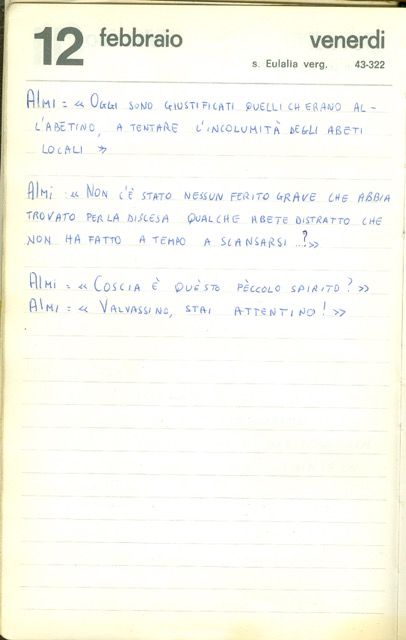 12 febbraio venerdi
s. Eulalia verg. 43-322
Almi = « OGGI SONO GIUSTIFICATI QUELLI CH'ERANO AL-
L'ABETINO, A TENTARE L'INCOLUMITÀ DEGLI ABETI
LOCALI »
Almi = « NON C'È STATO NESSUN FERITO GRAVE CHE ABBIA
TROVATO PER LA DISCESA QUALCHE ABETE DISTRATTO CHE
NON HA FATTO A TEMPO A SCANSARSI ..?»
Almi = « COSCIA È QUÈSTO PÈCCOLO SPIRITO? »
Almi = « VALVASSINO, STAI ATTENTINO! »